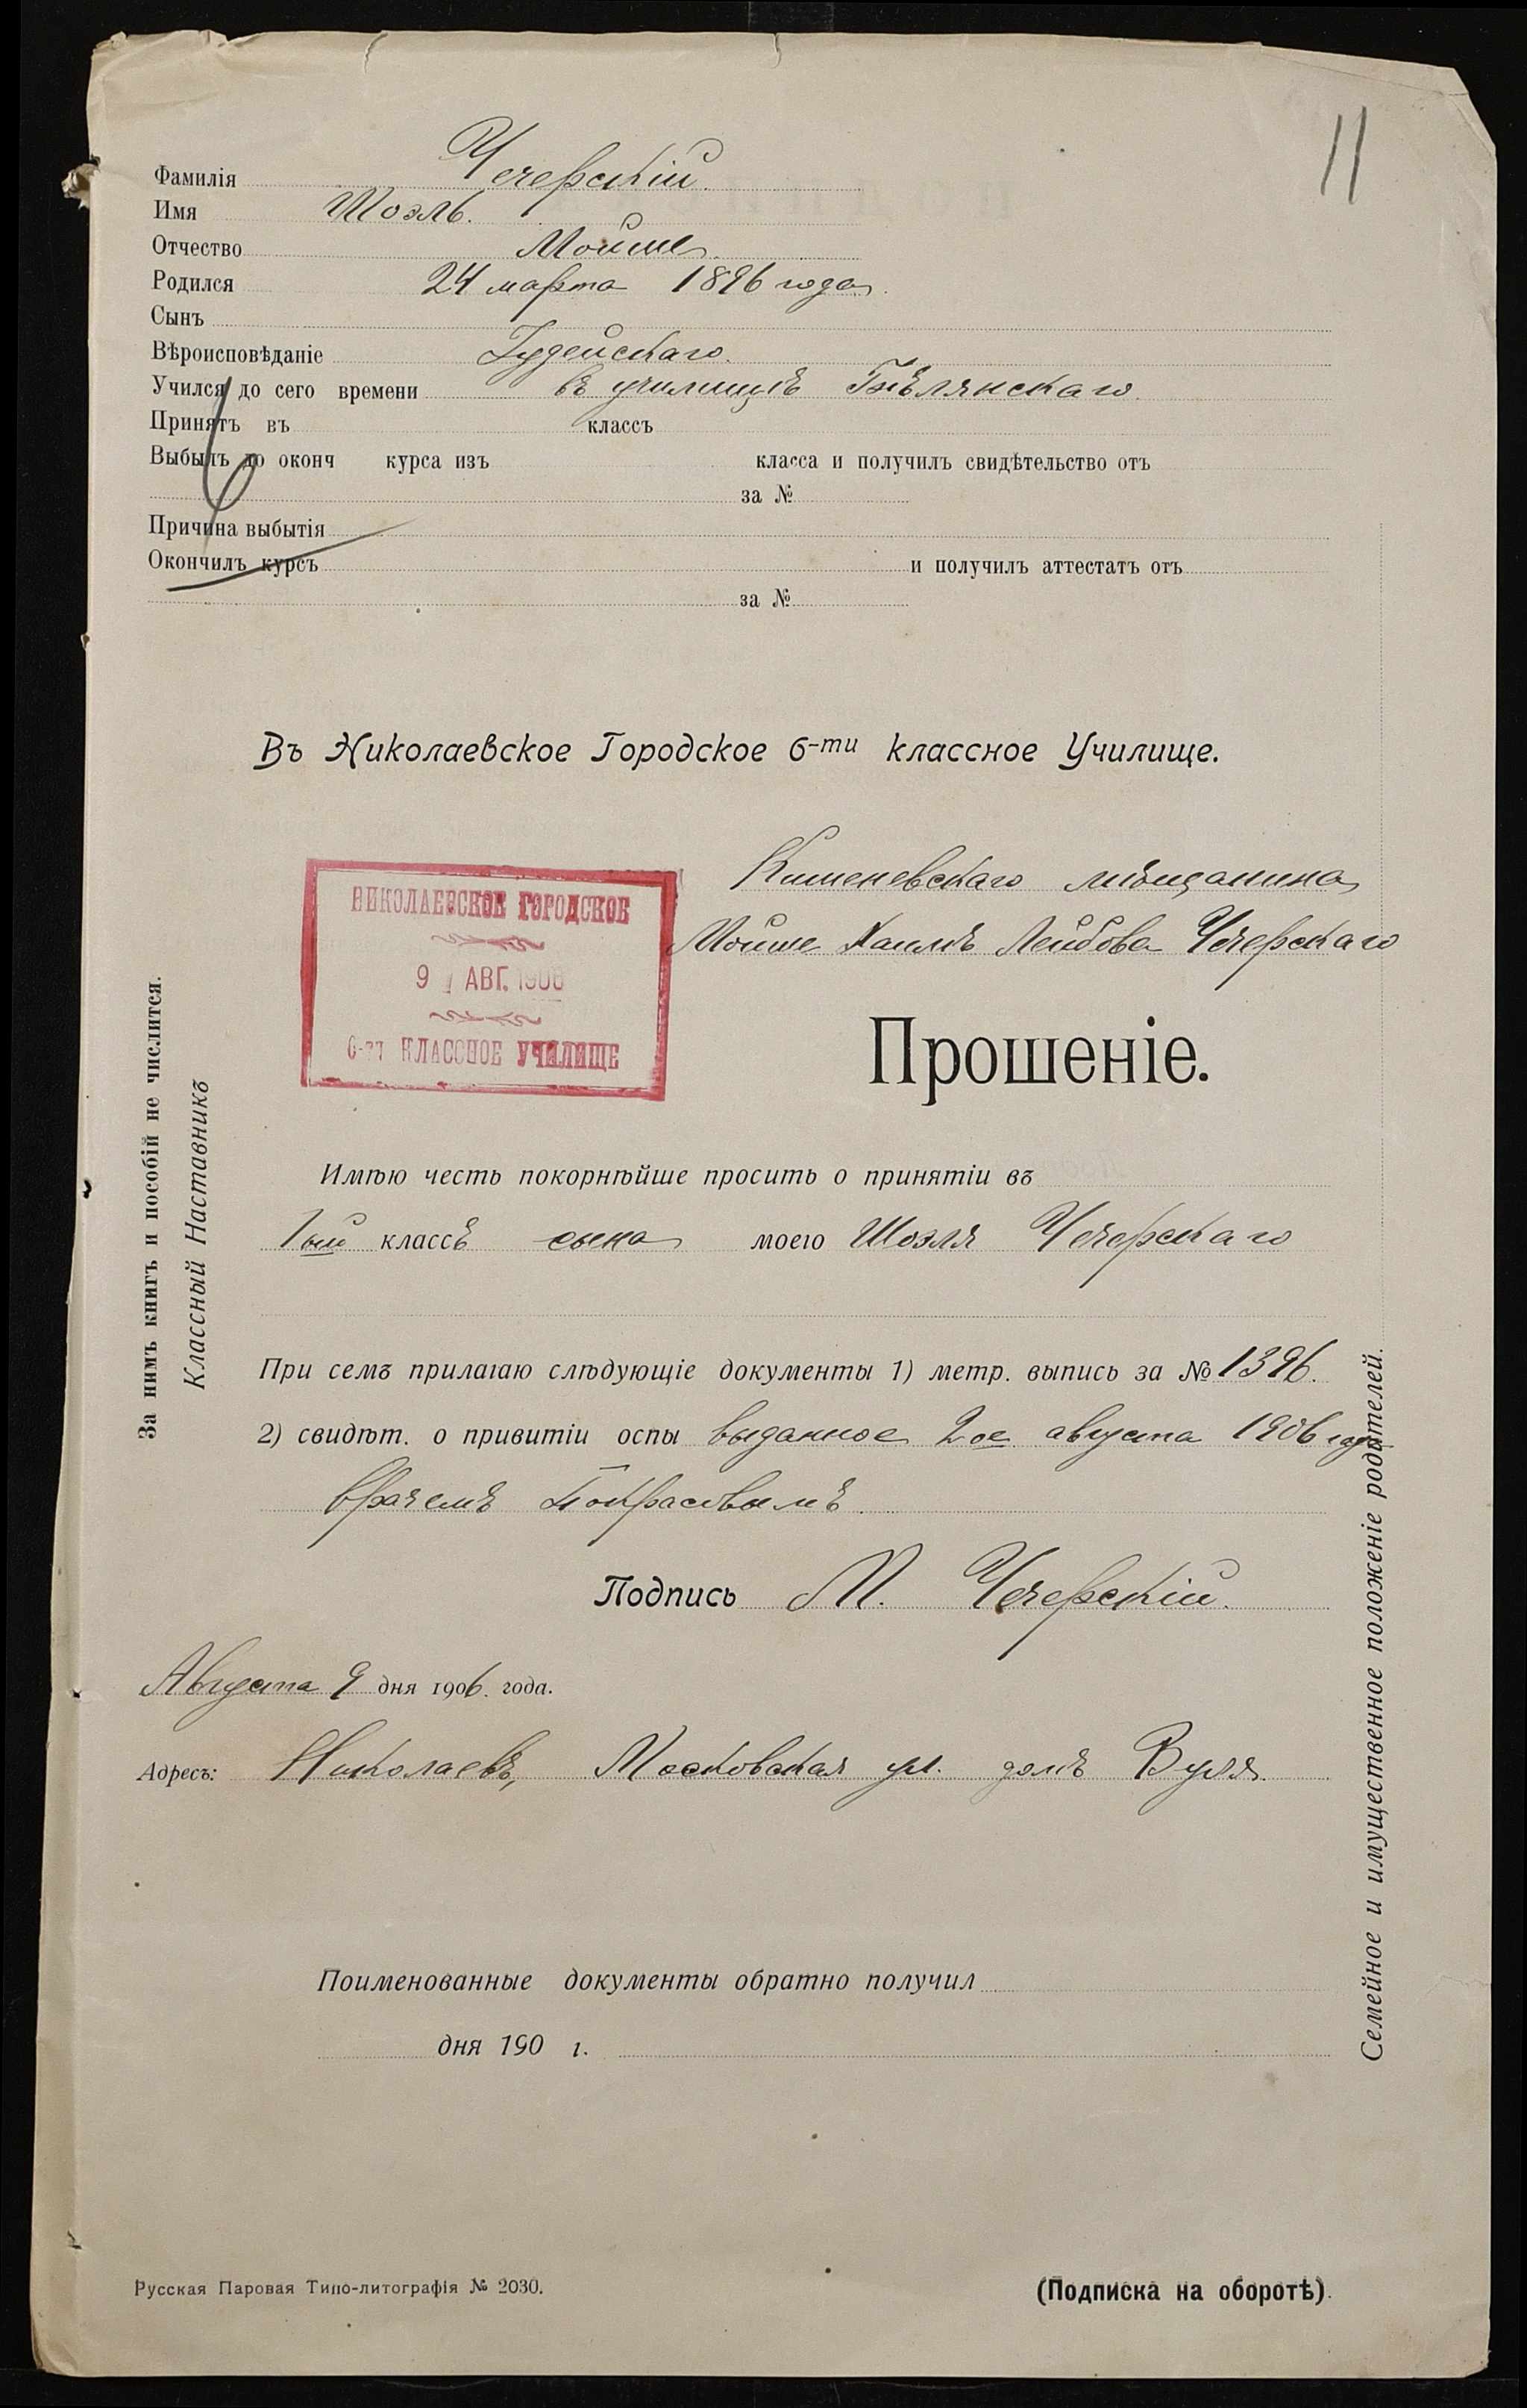 11
Фамилія Чечерскій.
Имя Шоэль.
Отчество Мойше
Родился 24 марта 1896 года.
Сынъ
Вѣроисповѣданіе Іудейскаго.
Учился до сего времени въ училищѣ Бѣлянскаго.
Принятъ въ классъ
Выбылъ до оконч курса изъ класса и получилъ свидѣтельство отъ
за №
Причина выбытія
Окончилъ курсъ и получилъ аттестатъ отъ
за №
Въ Николаевское Городское 6-ти классное Училище.
Кишеневскаго мѣщанина
Мойше Хаимъ Лейбова Чечерскаго
НИКОЛАЕВСКОЕ ГОРОДСКОЕ
9 АВГ. 1906
6-ти КЛАССНОЕ УЧИЛИЩЕ
Прошеніе.
Имѣю честь покорнѣйше просить о принятіи въ
1ый классъ сына моего Шоэля Чечерскаго
При семъ прилагаю слѣдующіе документы 1) метр. выпись за № 1396.
2) свидѣт. о привитіи оспы выданное 2ое августа 1906 года
врачемъ
Подпись М. Чечерскій.
Августа 9 дня 1906. года.
Адресъ: Николаевъ, Московская ул. домъ
Поименованные документы обратно получил
дня 190 г.
Русская Паровая Типо-литографія № 2030.
(Подписка на оборотѣ).
За нимъ книгъ и пособій не числится.
Классный Наставникъ
Семейное и имущественное положеніе родителей.